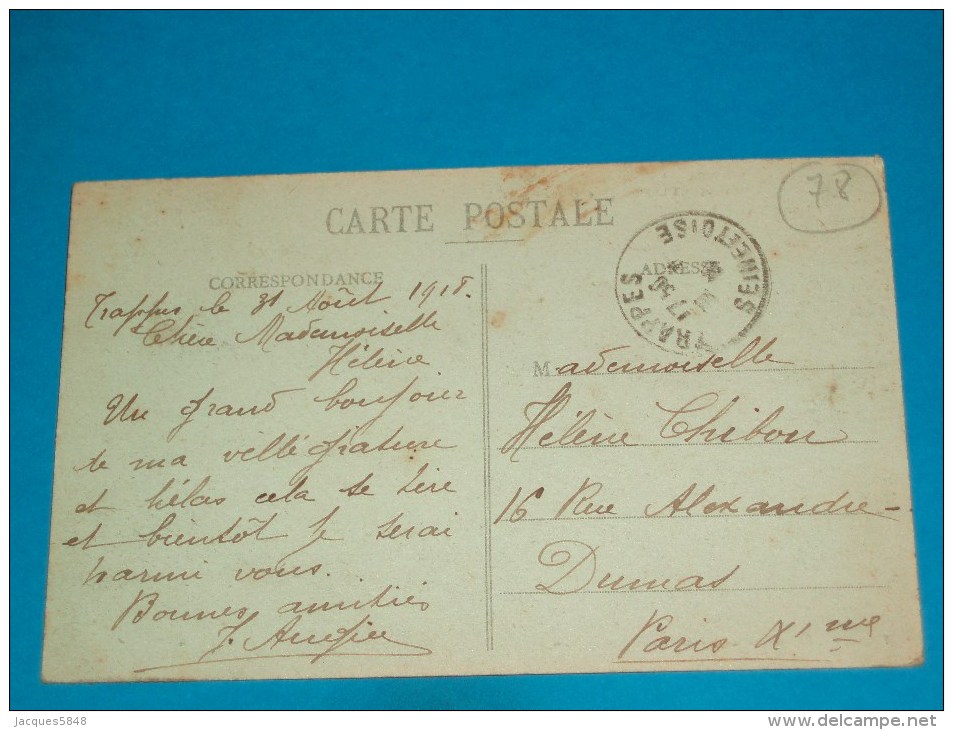 78
CARTE POSTALE
CORRESPONDANCE
ADRESSE
TRAPPES
SEINE ET OISE
17 50
Trappes le 31 Août 1918.
Chère Mademoiselle
Hélène
Un grand bonjour
de ma villégiature
et hélas cela se tire
et bientôt je serai
parmi vous.
Bonnes amitiés
Mademoiselle
Hélène Chibou
16 Rue Alexandre-
Dumas
Paris XI me
Jacques5848
www.delcampe.net